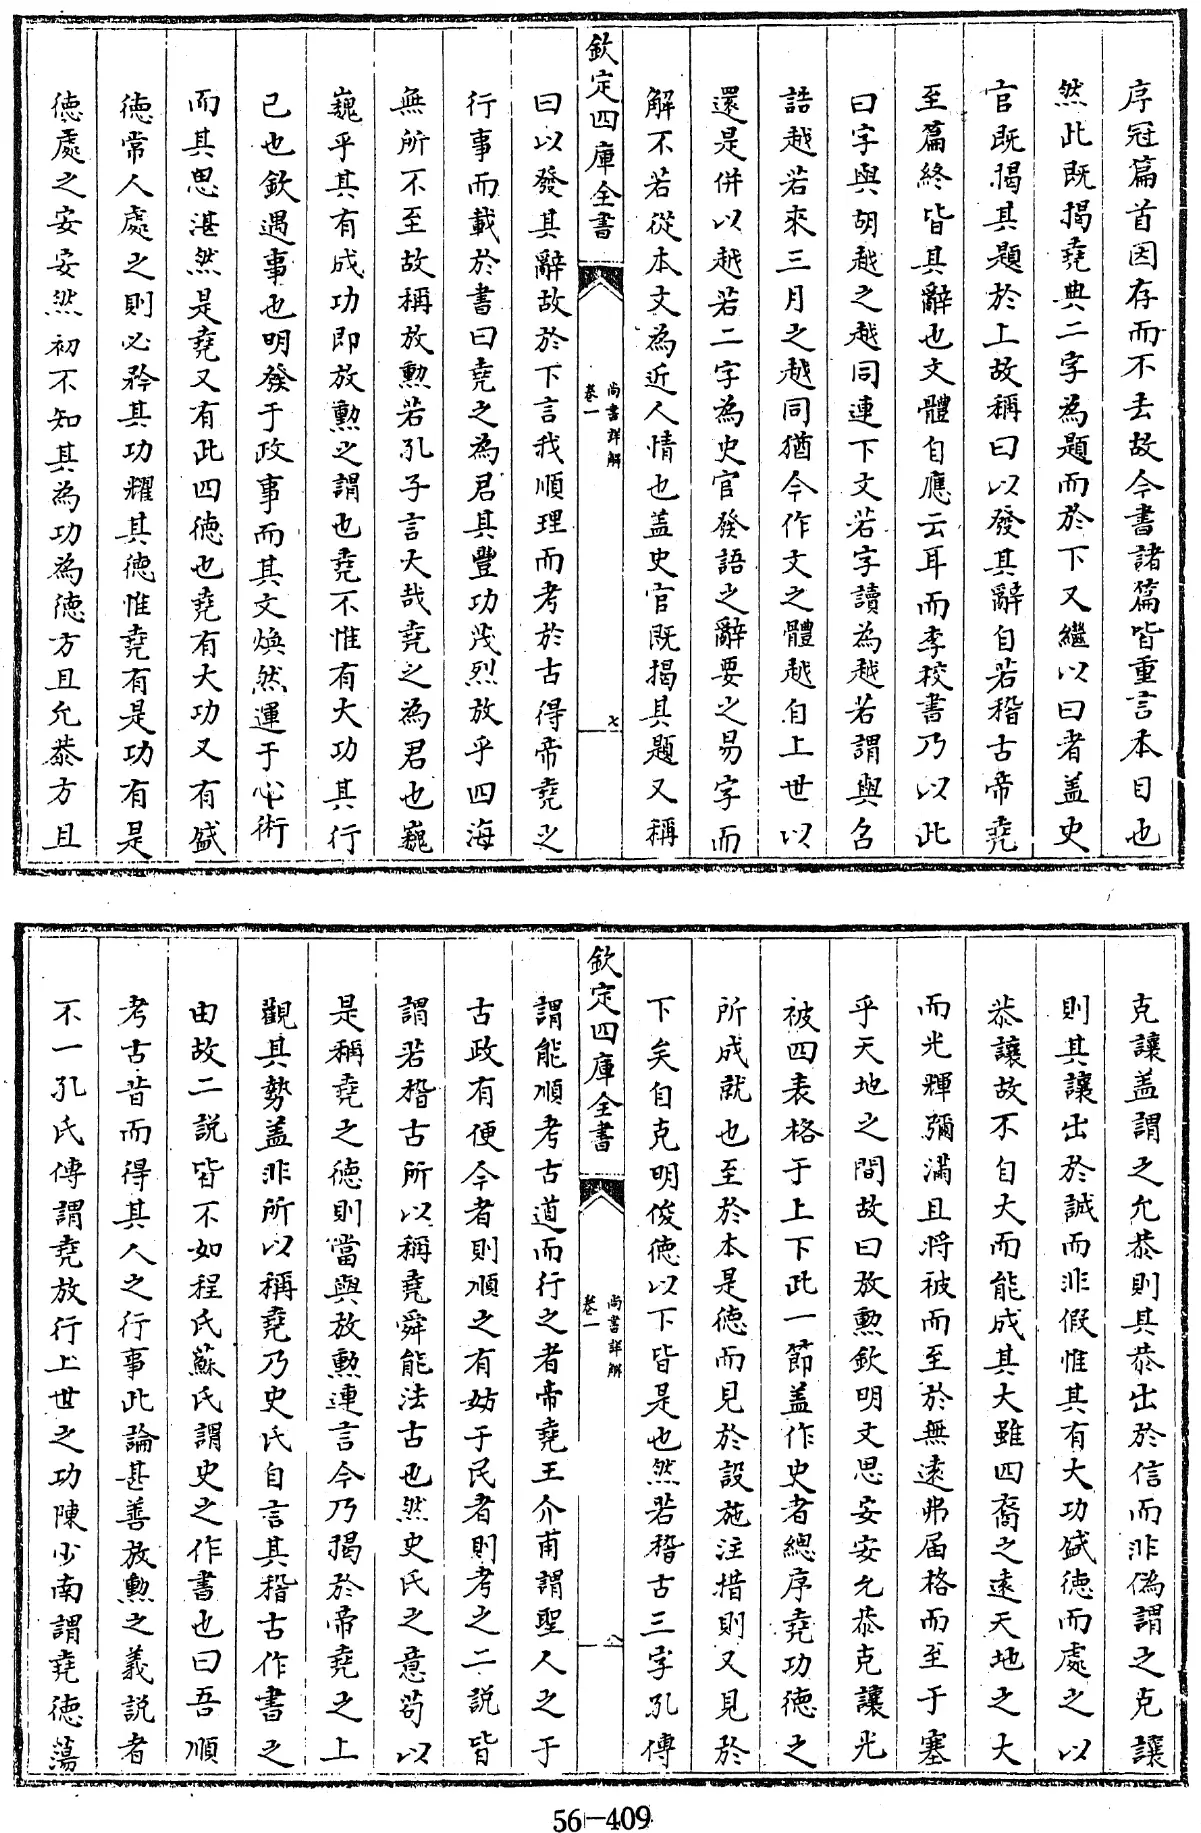 序冠篇首因存而不去故今書諸篇皆重言本目也
然此既揭堯典二字為題而於下又繼以曰者盖史
官既揭其題於上故稱曰以發其辭自若稽古帝堯
至篇終皆其辭也文體自應云耳而李校書乃以此
曰字與胡越之越同連下文若字讀為越若謂與召
誥越若來三月之越同猶今作文之體越自上世以
還是併以越若二字為史官發語之辭要之易字而
解不若從本文為近人情也盖史官既揭其題又稱
欽定四庫全書
尚書詳解
卷一
七
曰以發其辭故於下言我順理而考於古得帝堯之
行事而載於書曰堯之為君其豐功茂烈放乎四海
無所不至故稱放勲若孔子言大哉堯之為君也巍
巍乎其有成功即放勲之謂也堯不惟有大功其行
己也欽遇事也明發于政事而其文煥然運于心術
而其思湛然是堯又有此四徳也堯有大功又有盛
徳常人處之則必矜其功耀其徳惟堯有是功有是
徳處之安安然初不知其為功為徳方且允恭方且
克讓盖謂之允恭則其恭出於信而非偽謂之克讓
則其讓出於誠而非假惟其有大功盛徳而處之以
恭讓故不自大而能成其大雖四裔之遠天地之大
而光輝彌滿且將被而至於無遠弗届格而至于塞
乎天地之間故曰放勲欽明文思安安允恭克讓光
被四表格于上下此一節盖作史者總序堯功徳之
所成就也至於本是徳而見於設施注措則又見於
下矣自克明俊徳以下皆是也然若稽古三字孔傳
欽定四庫全書
尚書詳解
卷一
八
謂能順考古道而行之者帝堯王介甫謂聖人之于
古政有便今者則順之有妨于民者則考之二説皆
謂若稽古所以稱堯舜能法古也然史氏之意苟以
是稱堯之徳則當與放勲連言今乃揭於帝堯之上
觀其勢盖非所以稱堯乃史氏自言其稽古作書之
由故二説皆不如程氏蘇氏謂史之作書也曰吾順
考古昔而得其人之行事此論甚善放勲之義説者
不一孔氏傳謂堯放行上世之功陳少南謂堯徳蕩
56-409